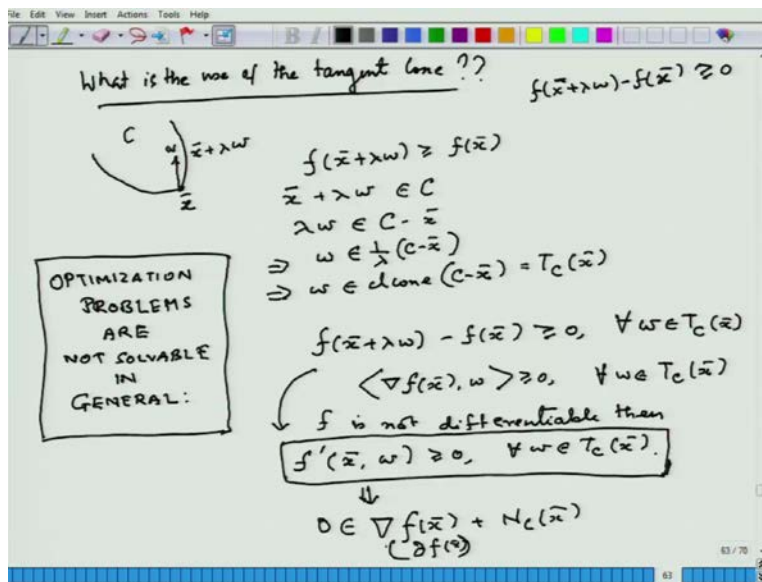 File Edit View Insert Actions Tools Help
What is the use of the tangent cone ??
f(x̄+λw)-f(x̄) ≥ 0
C
w x̄+λw
x̄
f(x̄+λw) ≥ f(x̄)
x̄ + λw ∈ C
λw ∈ C- x̄
⇒ w ∈ 1/λ (C-x̄)
⇒ w ∈ cl cone (C-x̄) = T_C(x̄)
OPTIMIZATION
PROBLEMS
ARE
NOT SOLVABLE
IN
GENERAL:
f(x̄+λw) - f(x̄) ≥ 0, ∀ w ∈ T_C(x̄)
⟨∇f(x̄), w⟩ ≥ 0, ∀ w ∈ T_C(x̄)
f is not differentiable then
f'(x̄, w) ≥ 0, ∀ w ∈ T_C(x̄).
⇓
0 ∈ ∇f(x̄) + N_C(x̄)
(∂f(x̄))
63 / 70
63